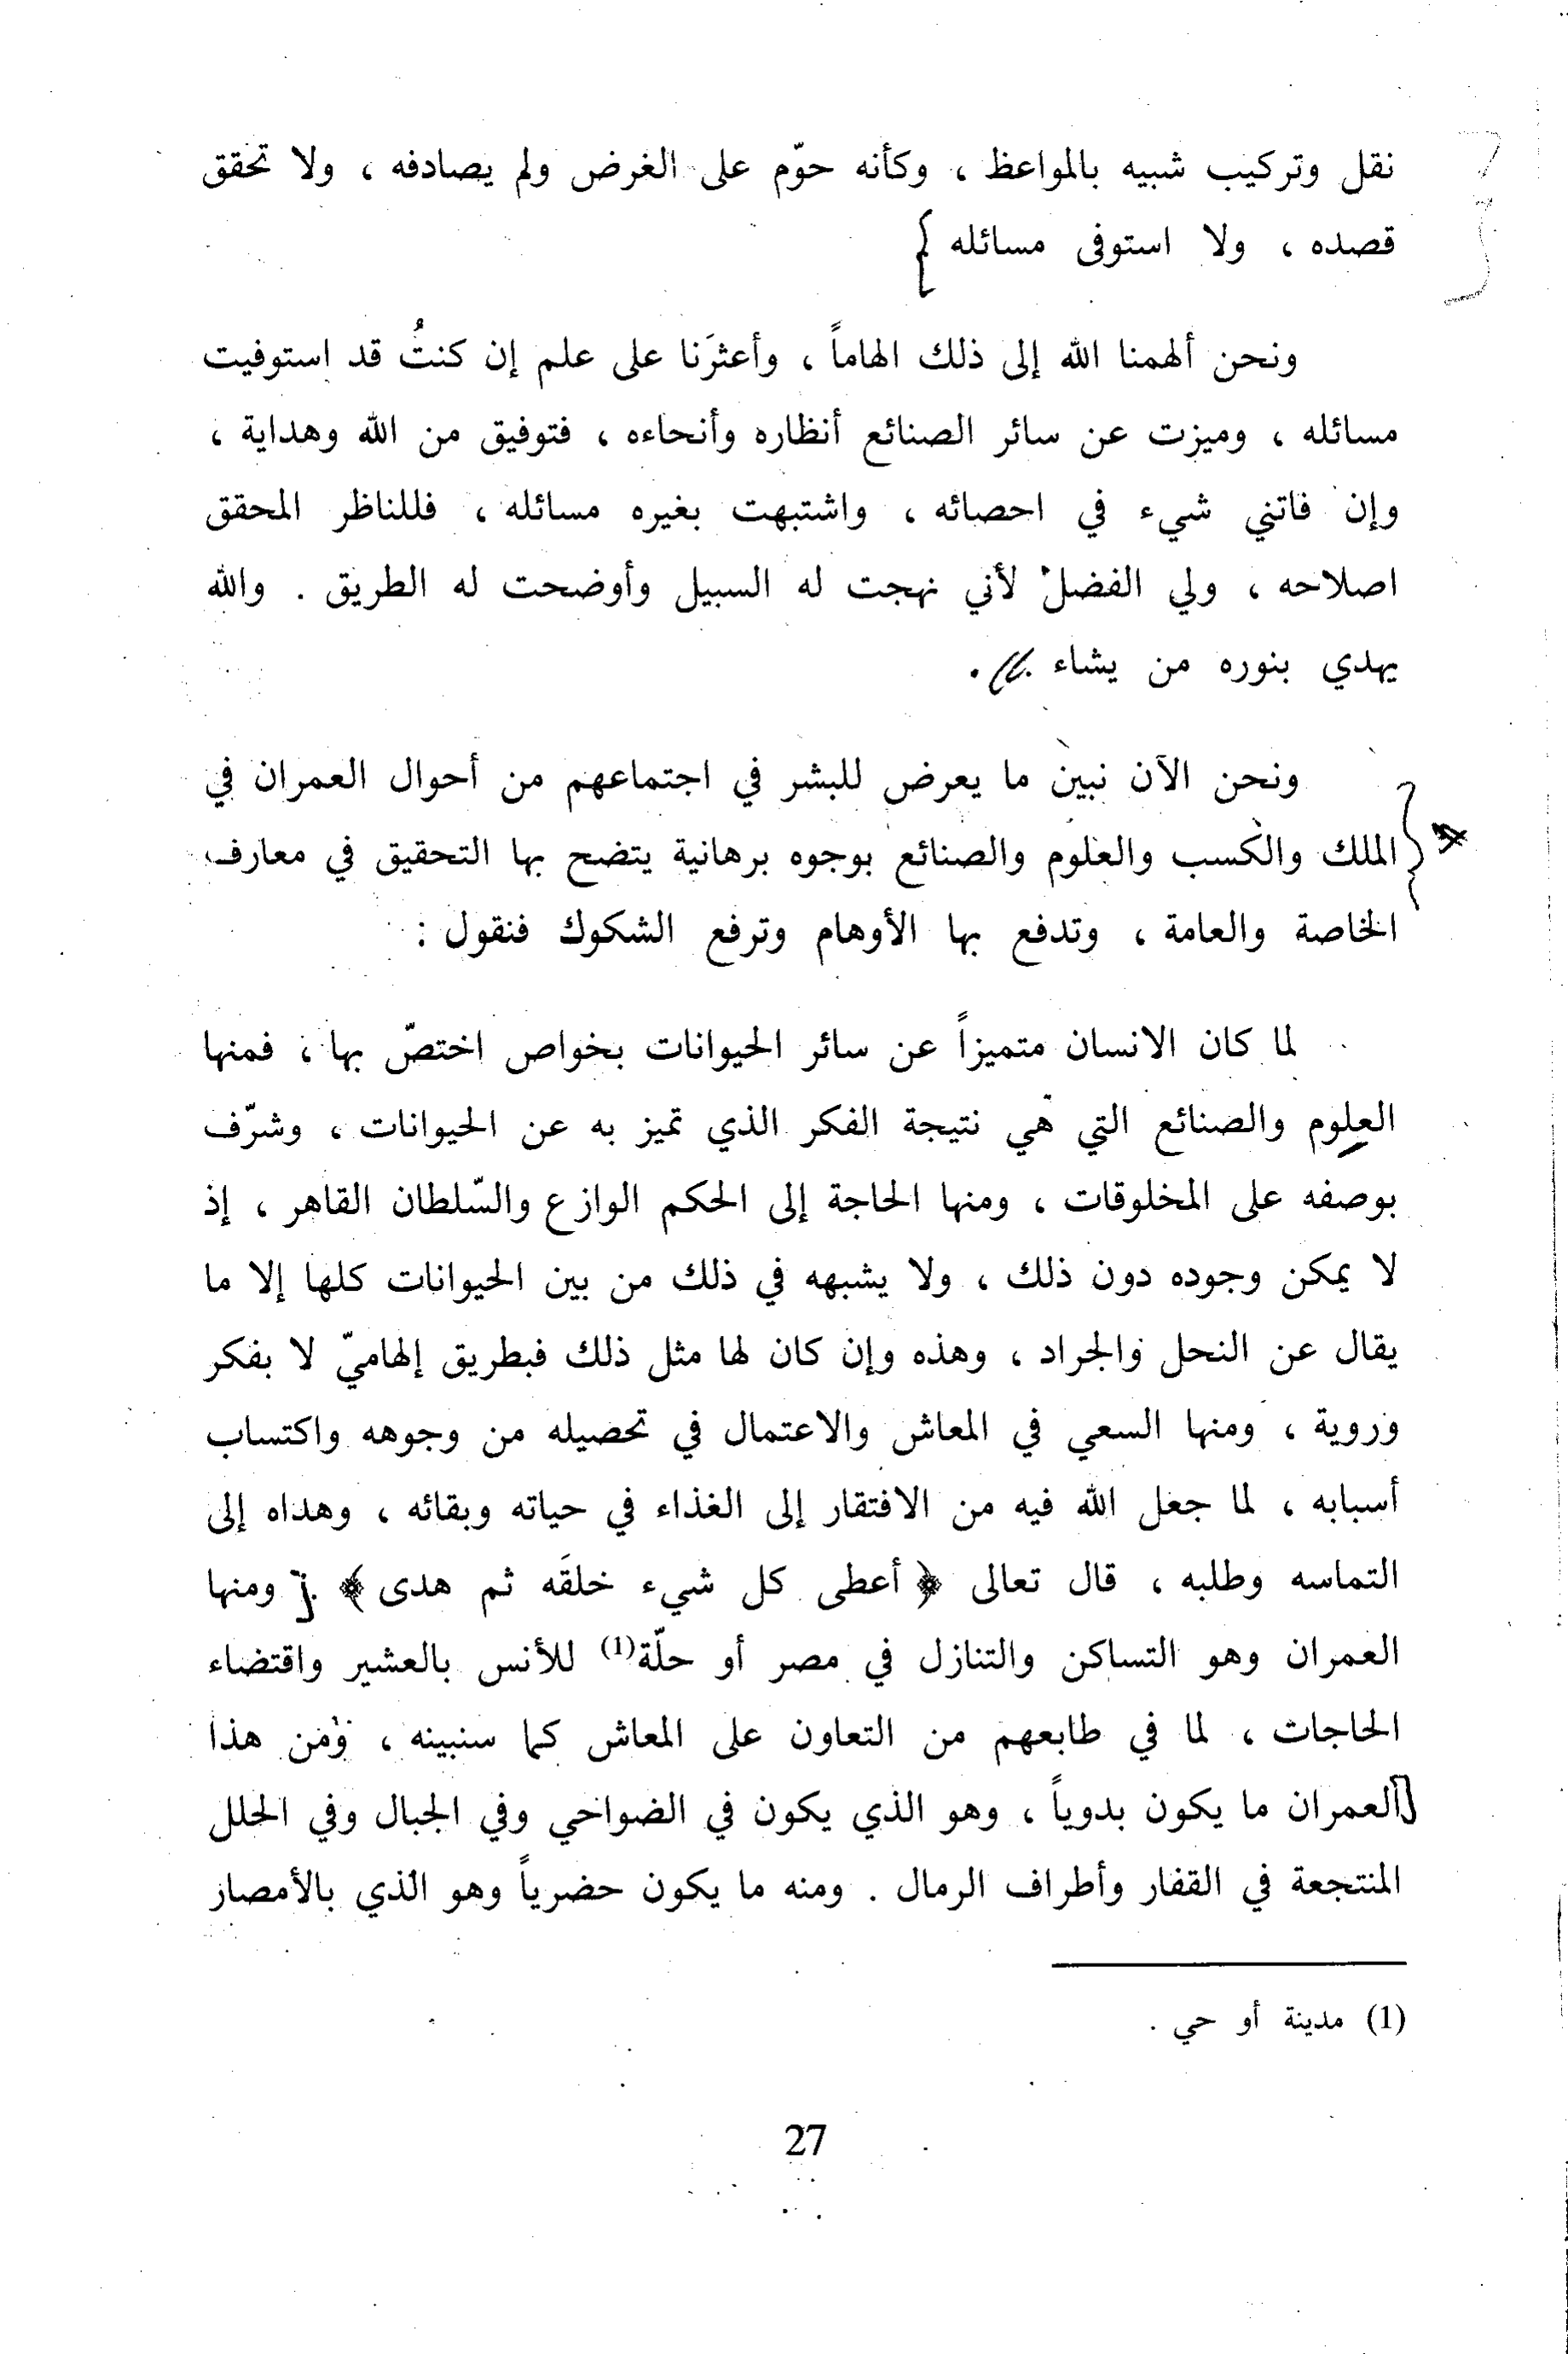 نقل وتركيب شبيه بالمواعظ ، وكأنه حوّم على الغرض ولم يصادفه ، ولا تحقق
قصده ، ولا استوفى مسائله
ونحن ألهمنا الله إلى ذلك الهاماً ، وأعثرَنا على علم إن كنتُ قد استوفيت
مسائله ، وميزت عن سائر الصنائع أنظاره وأنحاءه ، فتوفيق من الله وهداية ،
وإن فاتني شيء في احصائه ، واشتبهت بغيره مسائله ، فللناظر المحقق
اصلاحه ، ولي الفضل لأني نهجت له السبيل وأوضحت له الطريق . والله
يهدي بنوره من يشاء .
ونحن الآن نبين ما يعرض للبشر في اجتماعهم من أحوال العمران في
الملك والكسب والعلوم والصنائع بوجوه برهانية يتضح بها التحقيق في معارف
الخاصة والعامة ، وتدفع بها الأوهام وترفع الشكوك فنقول :
لما كان الانسان متميزاً عن سائر الحيوانات بخواص اختصّ بها ، فمنها
العلوم والصنائع التي هي نتيجة الفكر الذي تميز به عن الحيوانات ، وشرّف
بوصفه على المخلوقات ، ومنها الحاجة إلى الحكم الوازع والسّلطان القاهر ، إذ
لا يمكن وجوده دون ذلك ، ولا يشبهه في ذلك من بين الحيوانات كلها إلا ما
يقال عن النحل والجراد ، وهذه وإن كان لها مثل ذلك فبطريق إلهاميّ لا بفكر
وروية ، ومنها السعي في المعاش والاعتمال في تحصيله من وجوهه واكتساب
أسبابه ، لما جعل الله فيه من الافتقار إلى الغذاء في حياته وبقائه ، وهداه إلى
التماسه وطلبه ، قال تعالى ﴿ أعطى كل شيء خلقَه ثم هدى ﴾ . ومنها
العمران وهو التساكن والتنازل في مصر أو حلّة(1) للأنس بالعشير واقتضاء
الحاجات ، لما في طابعهم من التعاون على المعاش كما سنبينه ، ومن هذا
العمران ما يكون بدوياً ، وهو الذي يكون في الضواحي وفي الجبال وفي الحلل
المنتجعة في القفار وأطراف الرمال . ومنه ما يكون حضرياً وهو الذي بالأمصار
(1) مدينة أو حي .
27